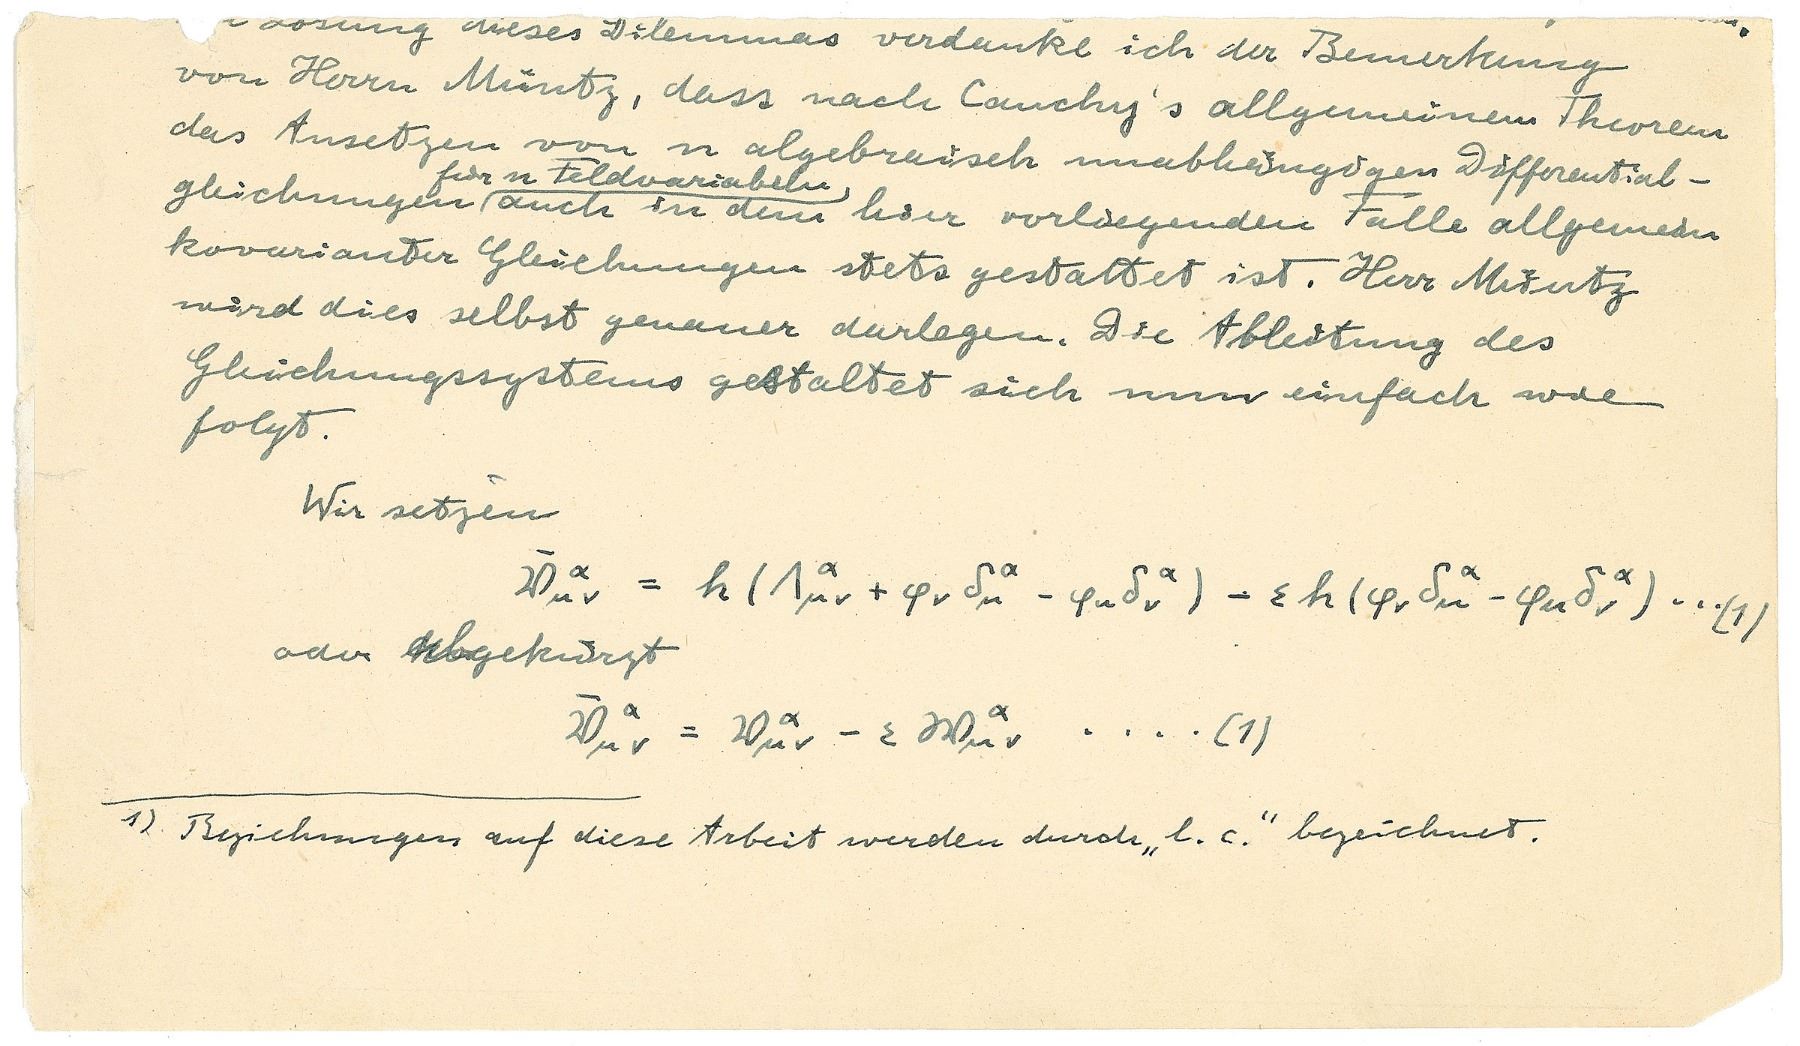 Lösung dieses Dilemmas verdanke ich der Bemerkung
von Herrn Müntz, dass nach Cauchy's allgemeinem Theorem
das Ansetzen von n algebraisch unabhängigen Differential-
für n Feldvariabeln
gleichungen auch in dem hier vorliegenden Falle allgemein
kovarianter Gleichungen stets gestattet ist. Herr Müntz
wird dies selbst genauer darlegen. Die Ableitung des
Gleichungssystems gestaltet sich nun einfach wie
folgt.
Wir setzen
𝔙̄^α_μν = h(Λ^α_μν + φ_ν δ^α_μ - φ_μ δ^α_ν) - ε h(φ_ν δ^α_μ - φ_μ δ^α_ν) ...(1)
oder abgekürzt
𝔙̄^α_μν = 𝔙^α_μν - ε 𝔚^α_μν ....(1)
1) Beziehungen auf diese Arbeit werden durch „l. c.“ bezeichnet.